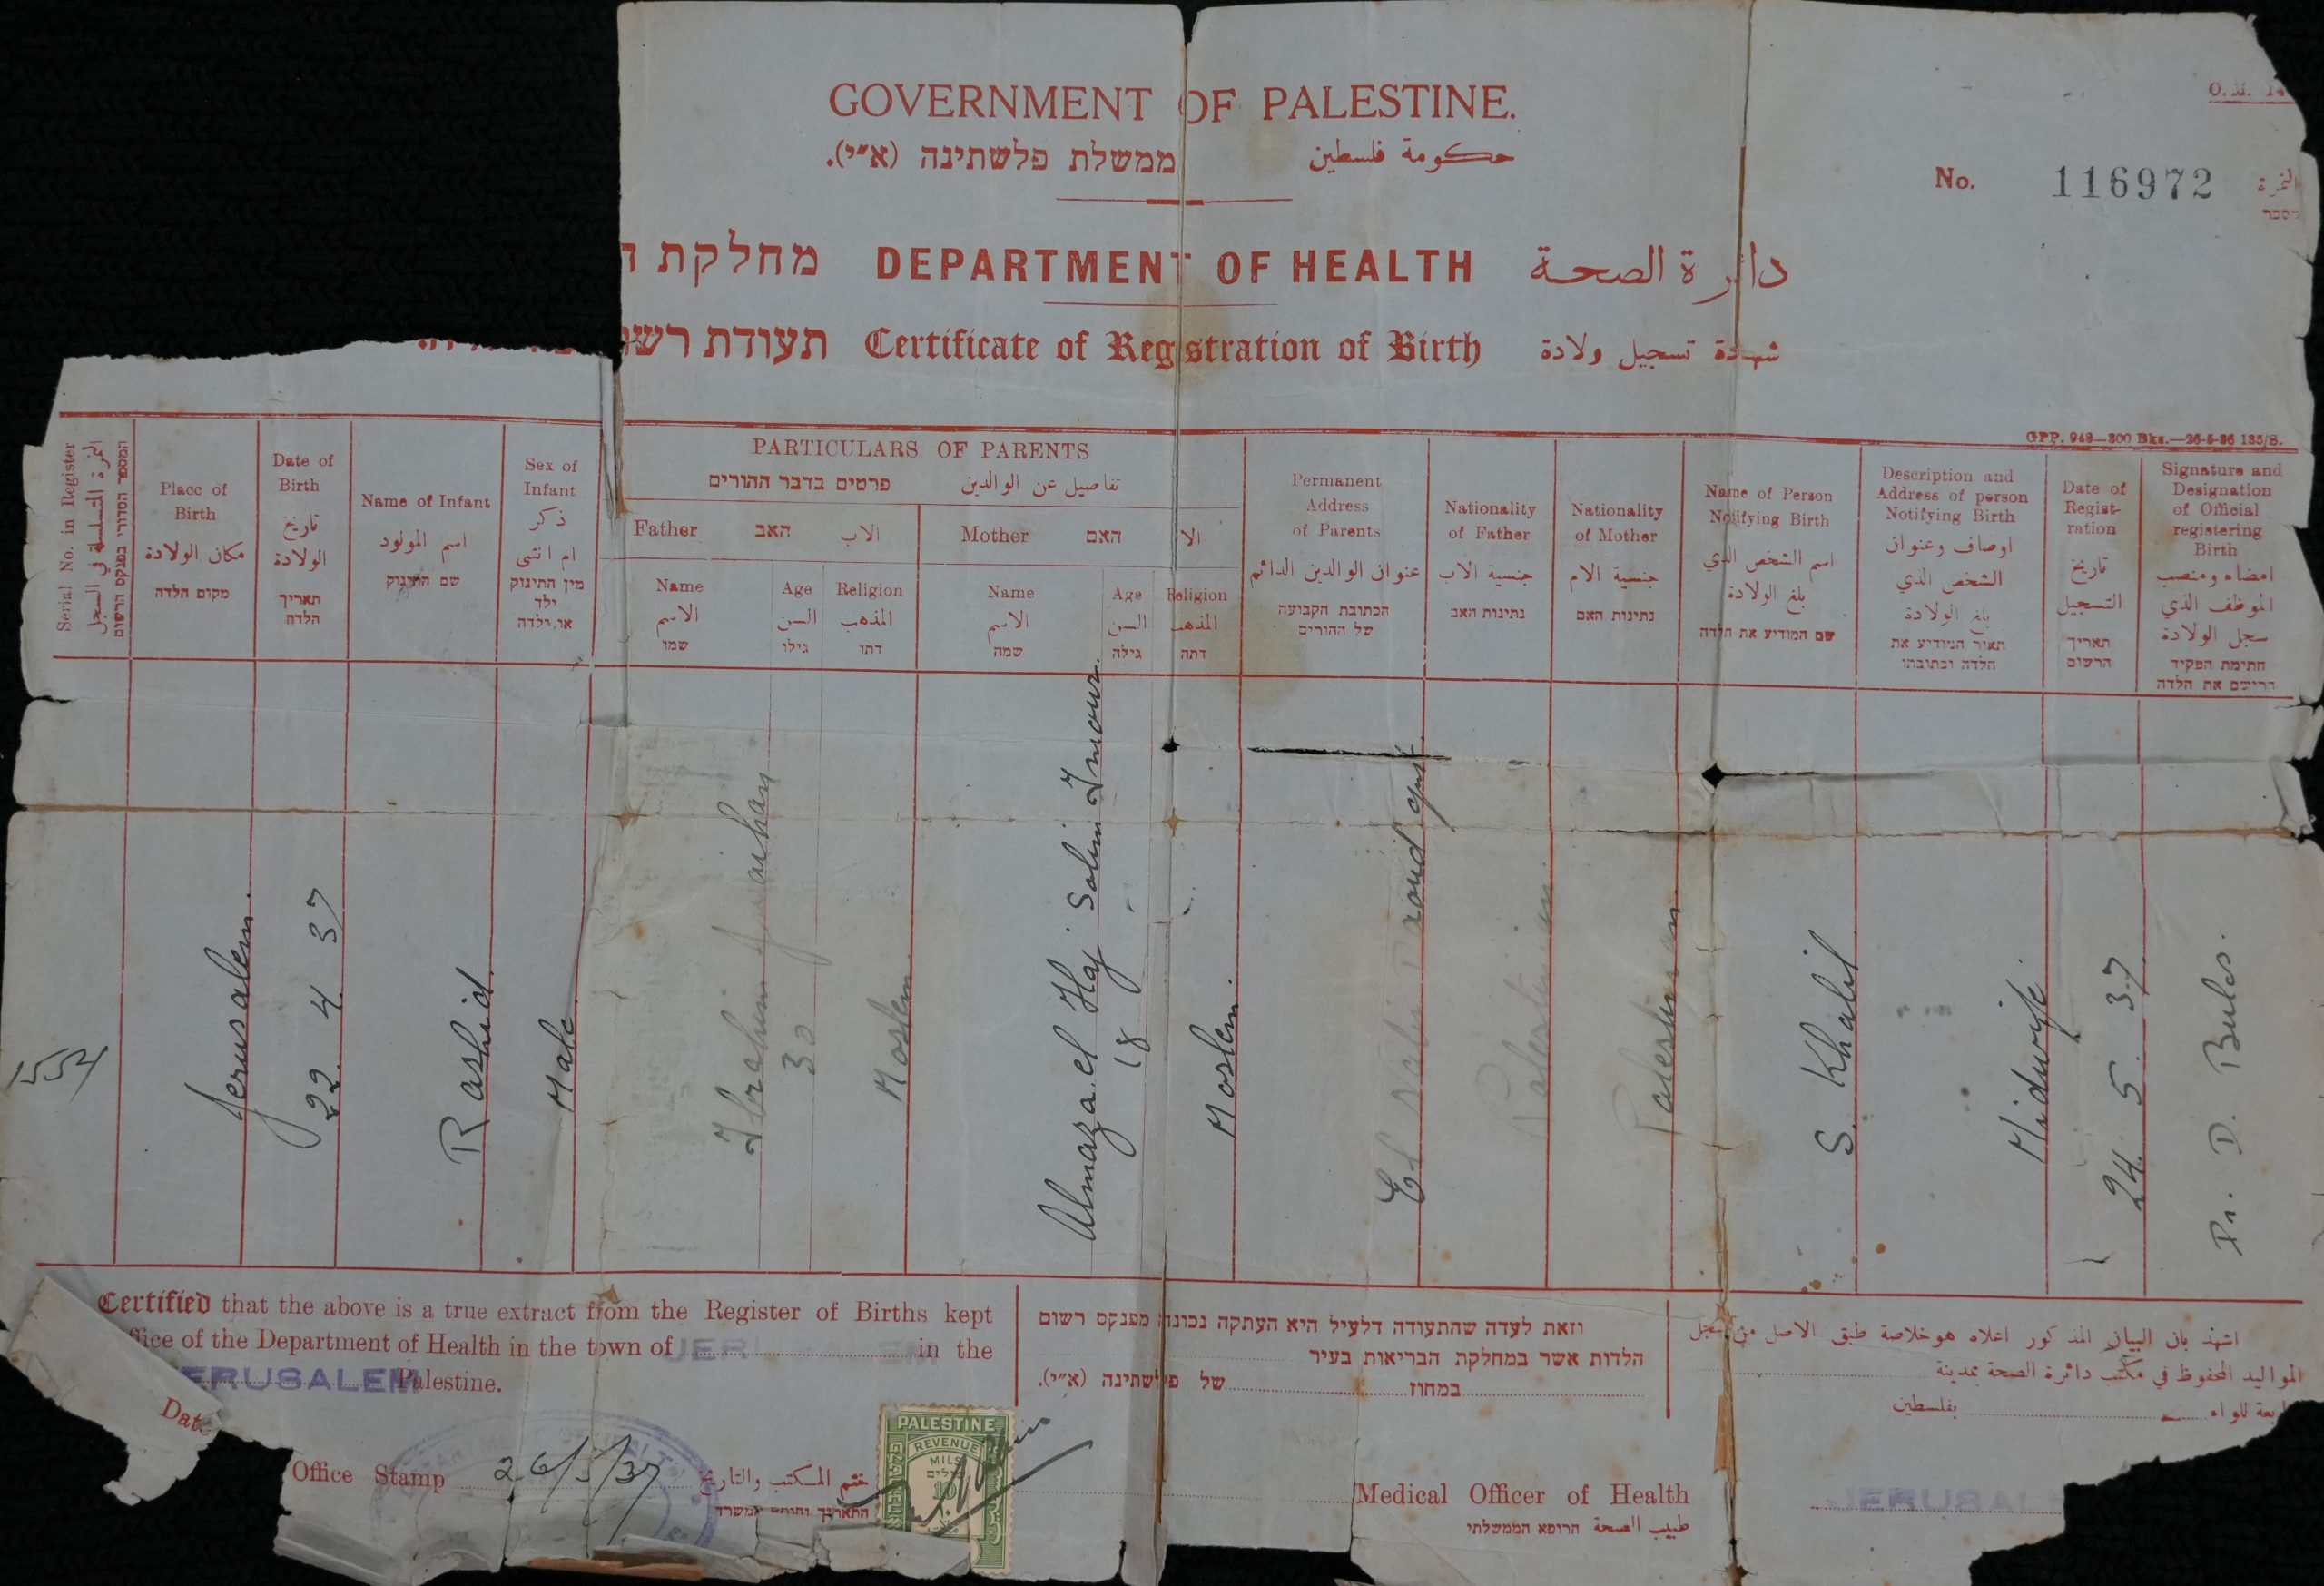 GOVERNMENT OF PALESTINE.
ממשלת פלשתינה (א״י). حكومة فلسطين
No. 116972 النمرة
מספר
מחלקת ה DEPARTMENT OF HEALTH دائرة الصحة
תעודת רשו Certificate of Registration of Birth شهادة تسجيل ولادة
GPP. 949—300 Bks.—26-5-36 135/S.
Serial No. in Register
النمرة المتسلسلة في السجل
המספר הסדורי בפנקס הרשום
Place of Birth
مكان الولادة
מקום הלדה
Date of Birth
تاريخ الولادة
תאריך הלדה
Name of Infant
اسم المولود
שם התינוק
Sex of Infant
ذكر ام انثى
מין התינוק ילד או ילדה
PARTICULARS OF PARENTS
פרטים בדבר ההורים تفاصيل عن الوالدين
Father האב الاب
Mother האם الا
Name
الاسم
שמו
Age
السن
גילו
Religion
المذهب
דתו
Name
الاسم
שמה
Age
السن
גילה
Religion
المذهب
דתה
Permanent Address of Parents
عنوان الوالدين الدائم
הכתובת הקבועה של ההורים
Nationality of Father
جنسية الاب
נתינות האב
Nationality of Mother
جنسية الام
נתינות האם
Name of Person Notifying Birth
اسم الشخص الذي بلغ الولادة
שם המודיע את הלדה
Description and Address of person Notifying Birth
اوصاف وعنوان الشخص الذي بلغ الولادة
תאור המודיע את הלדה וכתובתו
Date of Regist-ration
تاريخ التسجيل
תאריך הרשום
Signature and Designation of Official registering Birth
امضاء ومنصب الموظف الذي سجل الولادة
חתימת הפקיד הרושם את הלדה
1554
Jerusalem.
22 4 37
Rashid
Male
Ibrahim
32
Moslem
Almaza el Haj Salim
18
Moslem.
El Nabi Daoud
Palestinian
Palestinian
S. Khalil
Midwife
24. 5. 37
D. Bulos.
Certified that the above is a true extract from the Register of Births kept
ffice of the Department of Health in the town of JER in the
ERUSALEM Palestine.
Date
Office Stamp 26/5/37 ختم المكتب والتاريخ
התאריך וחותם המשרד
PALESTINE
REVENUE
MILS
10
וזאת לעדה שהתעודה דלעיל היא העתקה נכונה מפנקס רשום
הלדות אשר במחלקת הבריאות בעיר
במחוז של פלשתינה (א״י).
اشهد بان البيان المذكور اعلاه هو خلاصة طبق الاصل من سجل
المواليد المحفوظ في مكتب دائرة الصحة بمدينة
بعة للواء بفلسطين
Medical Officer of Health
طبيب الصحة הרופא הממשלתי
JERUSAL